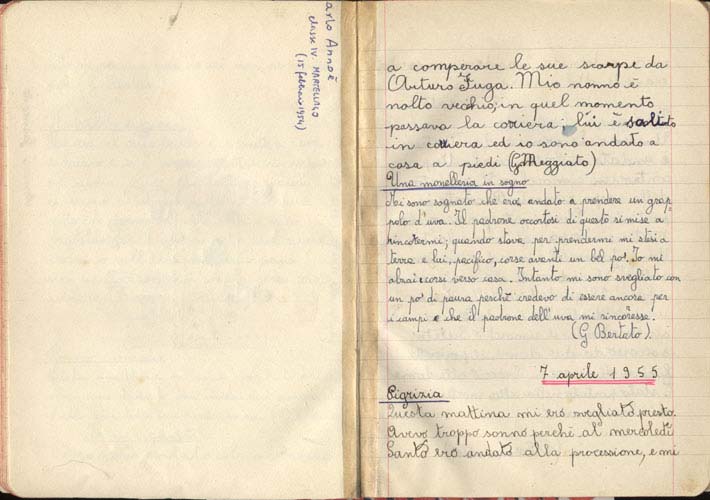 arlo Annoè
classe IV. MARTELLAGO
(15 febbraio 1954)
a comperare le sue scarpe da
Arturo Fuga. Mio nonno è
molto vecchio; in quel momento
passava la coriera; lui è salito
in coriera ed io sono andato a
casa a piedi (G. Meggiato)
Una monelleria in sogno
Mi sono sognato che ero andato a prendere un grap-
polo d'uva. Il padrone occortosi di questo si mise a
rincorermi; quando stava per prendermi mi stesi a
terra e lui, pacifico, corse avanti un bel po'. Io mi
alzai e corsi verso casa. Intanto mi sono svegliato con
un po' di paura perché credevo di essere ancora per
i campi e che il padrone dell'uva mi rincoresse.
(G Bertato).
7 aprile 1955
Pigrizia
Questa mattina mi ero svegliato presto.
Avevo troppo sonno perché al mercoledì
Santo ero andato alla processione, e mi